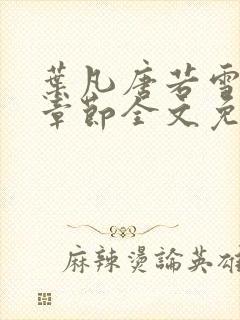 葉凡唐若雪
章節全文免
麻辣燙論英雄